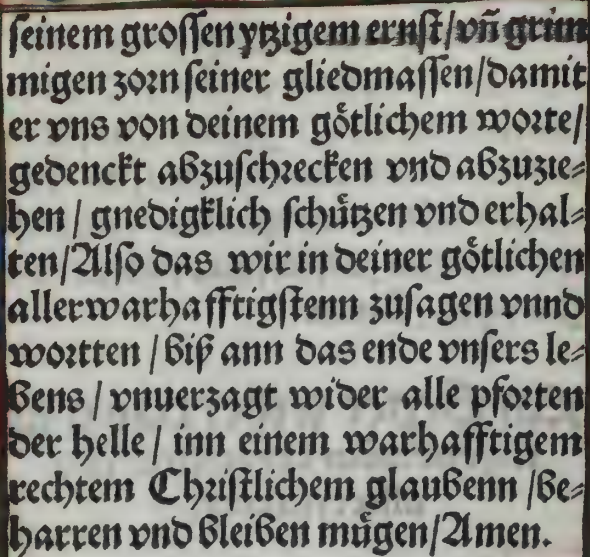 seinem grossen ytzigem ernst/vñ grim
migen zorn seiner gliedmassen/damit
er vns von deinem götlichem worte/
gedenckt abzuschrecken vnd abzuzie⸗
hen / gnedigklich schützen vnd erhal⸗
ten/Also das wir in deiner götlichen
allerwarhafftigstenn zusagen vnnd
wortten / biß ann das ende vnsers le⸗
bens / vnuerzagt wider alle pforten
der helle / inn einem warhafftigem
rechtem Christlichem glaubenn /be⸗
harren vnd bleiben mügen/Amen.